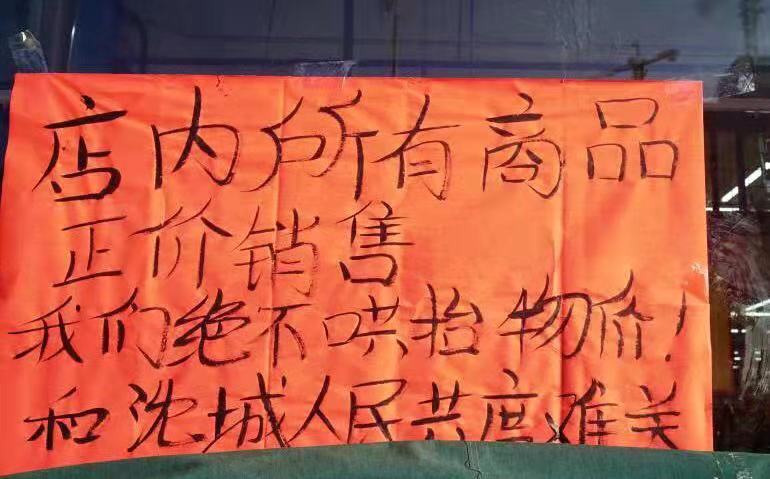 店内所有商品
正价销售
我们绝不哄抬物价!
和沈城人民共度难关